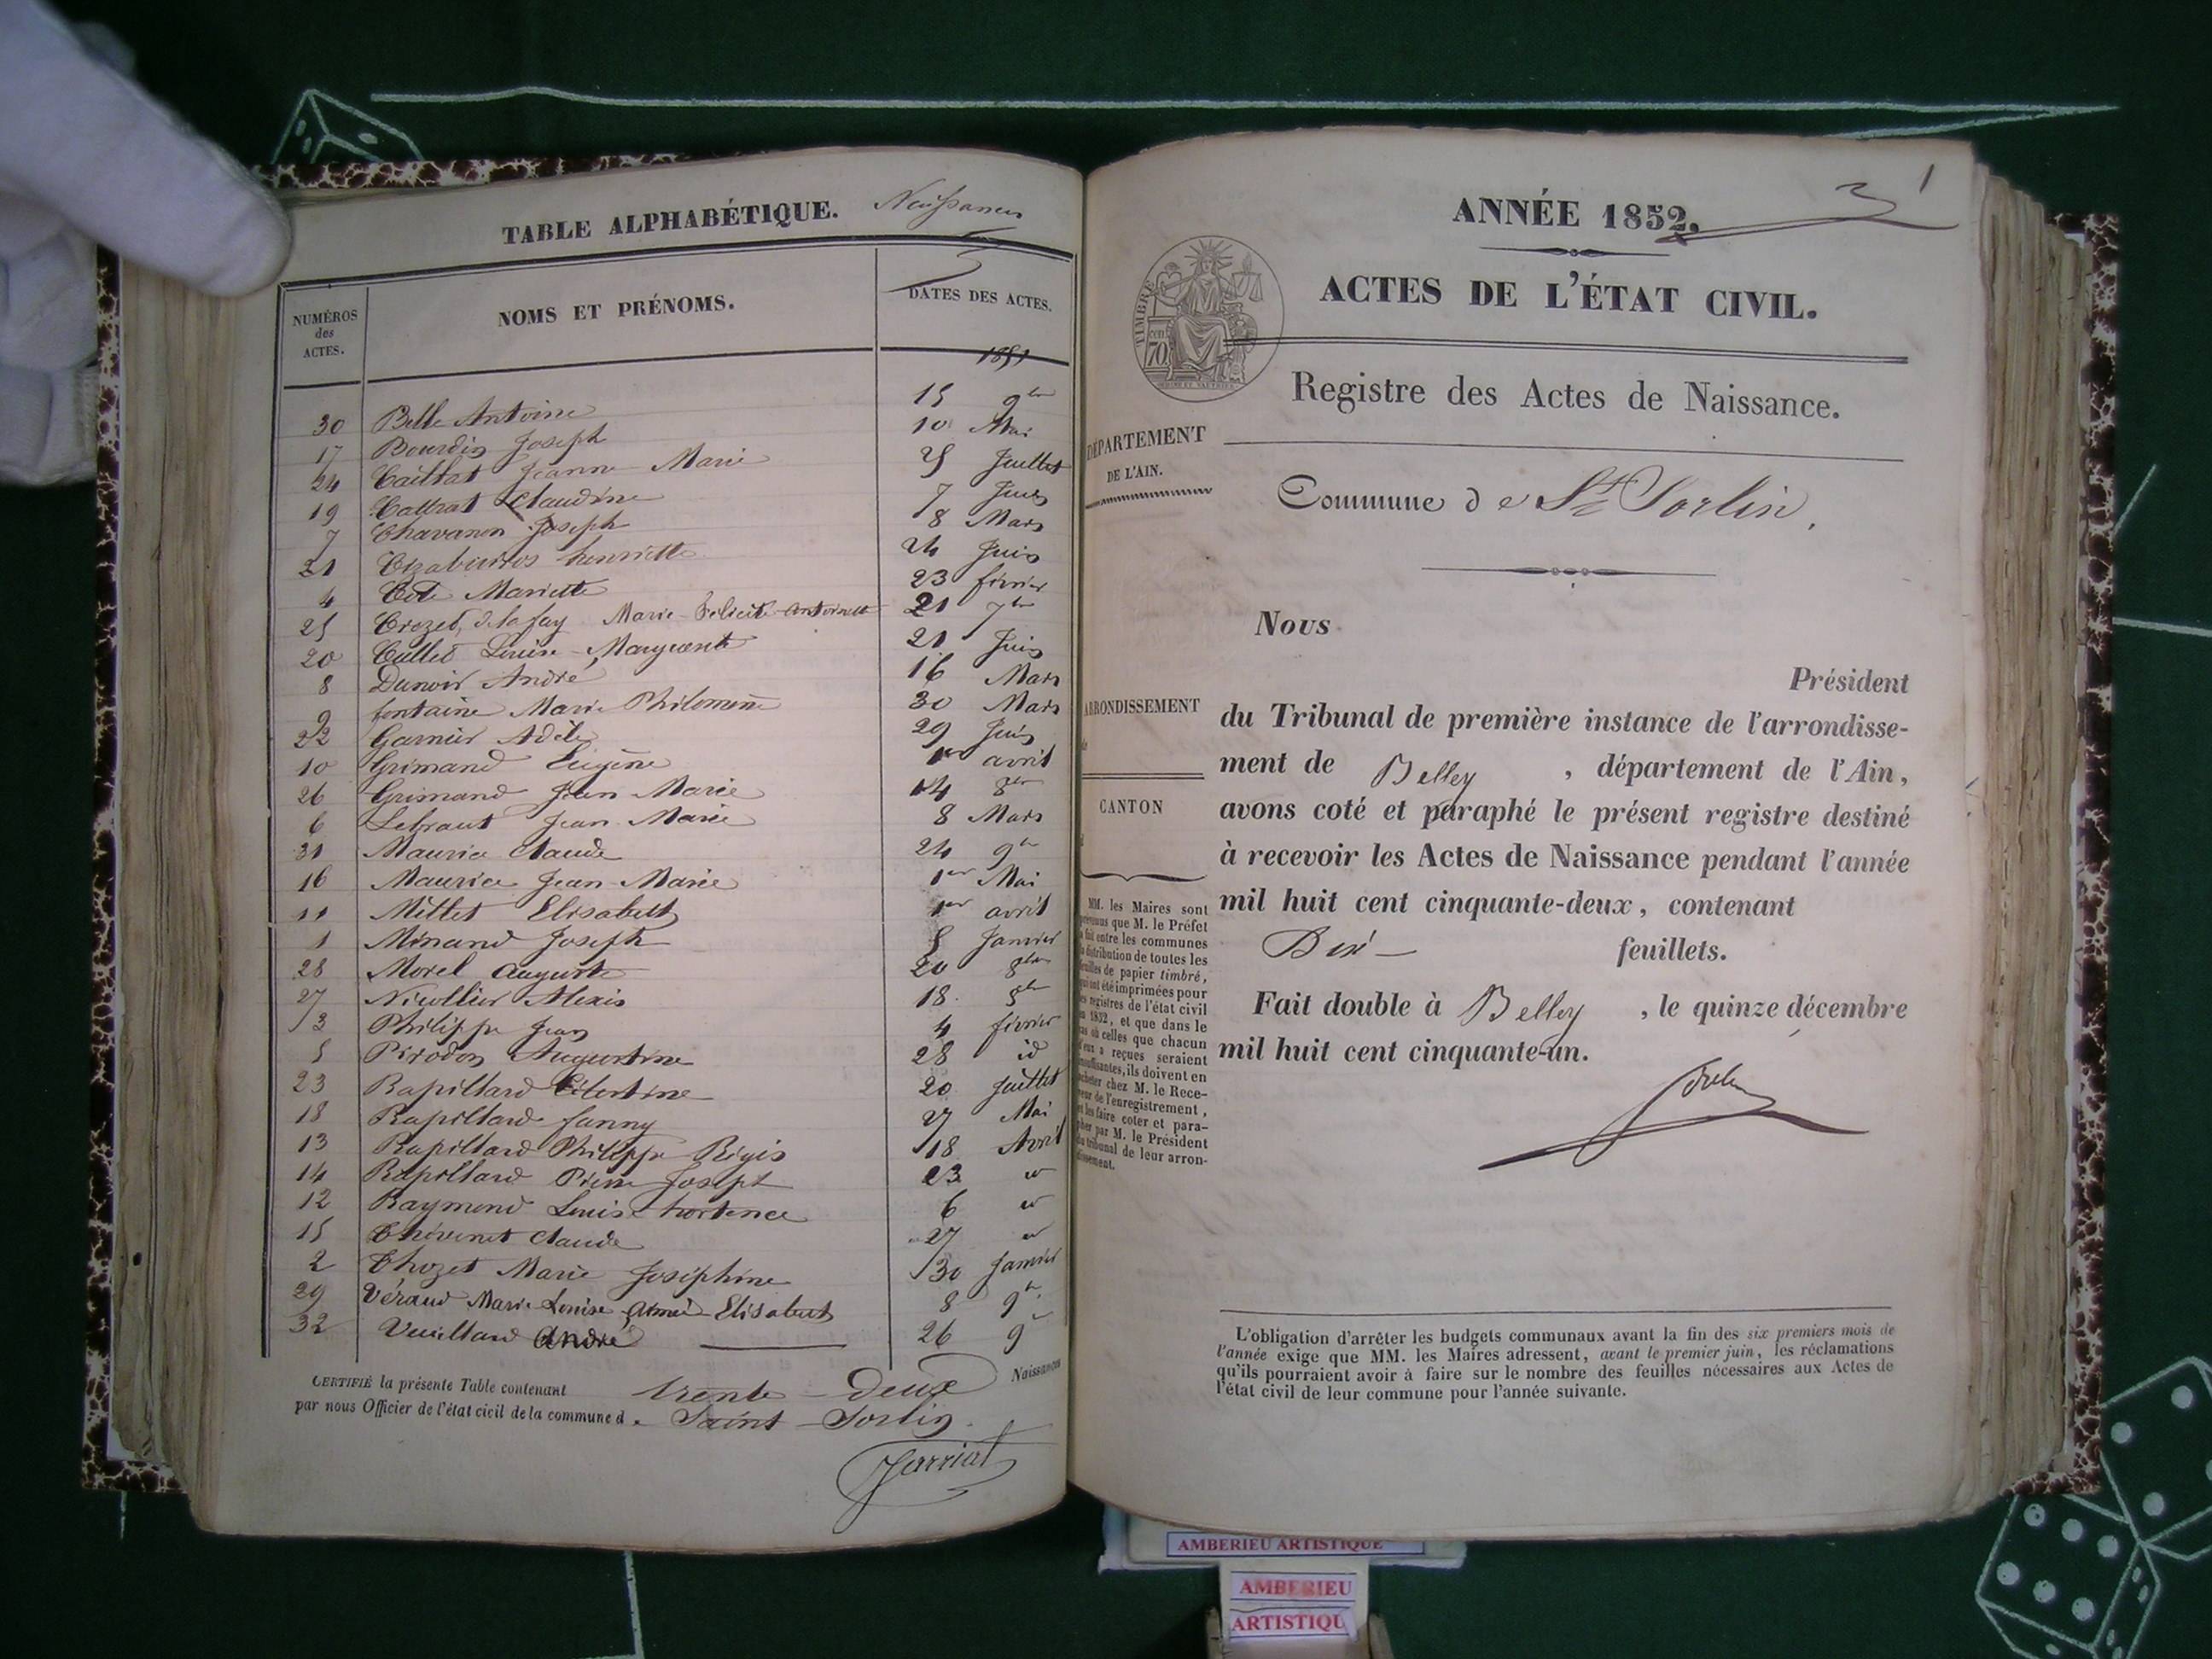 TABLE ALPHABÉTIQUE. Naissances
NUMÉROS des ACTES.
NOMS ET PRÉNOMS.
DATES DES ACTES.
1851
30 Belle Antoine 15 9bre
17 Bourdin Joseph 10 Mai
24 Caillat Jeanne Marie 25 Juillet
19 Cattrat Claudine 7 Juin
7 Chavanon Joseph 8 Mars
21 henriette 24 Juin
4 Cote Mariette 23 février
25 Crozet, delafay Marie Félicité Antoinette 21 7bre
20 Cullet Louise Marguerite 21 Juin
8 Dunoir André 16 Mars
9 fontaine Marie Philomène 30 Mars
22 Garnier Adèle 29 Juin
10 Grimand Eugène 1er avril
26 Grimand Jean Marie 14 8bre
6 Lebraut Jean Marie 8 Mars
31 Maurice Claude 24 9bre
16 Maurice Jean Marie 1er Mai
11 Millet Elisabeth 1er avril
1 Minand Joseph 5 Janvier
28 Morel Auguste 20 8bre
27 Nicollier Alexis 18 8bre
3 Philippe Jean 4 février
5 Pirodon Augustine 28 id
23 Rapillard Célestine 20 Juillet
18 Rapillard fanny 27 Mai
13 Rapillard Philippe Régis 18 Avril
14 Rapillard Pierre Joseph 23 id
12 Raymond Louise hortence 6 id
15 Thévenet Claude 27 id
2 Thozet Marie Joséphine 30 Janvier
29 Véraud Marie Louise Aimée Elisabeth 8 9bre
32 Vuillard André 26 9bre
CERTIFIÉ la présente Table contenant trente-deux Naissances
par nous Officier de l'état civil de la commune de Saint-Sorlin.
Jarriat
1
ANNÉE 1852.
ACTES DE L'ÉTAT CIVIL.
TIMBRE
70
Registre des Actes de Naissance.
DÉPARTEMENT
DE L'AIN.
Commune de St Sorlin.
Nous
Président
ARRONDISSEMENT
du Tribunal de première instance de l'arrondisse-
ment de Belley , département de l'Ain,
CANTON
avons coté et paraphé le présent registre destiné
à recevoir les Actes de Naissance pendant l'année
mil huit cent cinquante-deux, contenant
Dix feuillets.
Fait double à Belley , le quinze décembre
mil huit cent cinquante-un.
MM. les Maires sont
prévenus que M. le Préfet
a fait entre les communes
la distribution de toutes les
feuilles de papier timbré,
qui ont été imprimées pour
les registres de l'état civil
en 1852, et que dans le
cas où celles que chacun
d'eux a reçues seraient
insuffisantes, ils doivent en
acheter chez M. le Rece-
veur de l'enregistrement,
et les faire coter et para-
pher par M. le Président
du tribunal de leur arron-
dissement.
L'obligation d'arrêter les budgets communaux avant la fin des six premiers mois de
l'année exige que MM. les Maires adressent, avant le premier juin, les réclamations
qu'ils pourraient avoir à faire sur le nombre des feuilles nécessaires aux Actes de
l'état civil de leur commune pour l'année suivante.
AMBERIEU ARTISTIQUE
AMBERIEU
ARTISTIQU